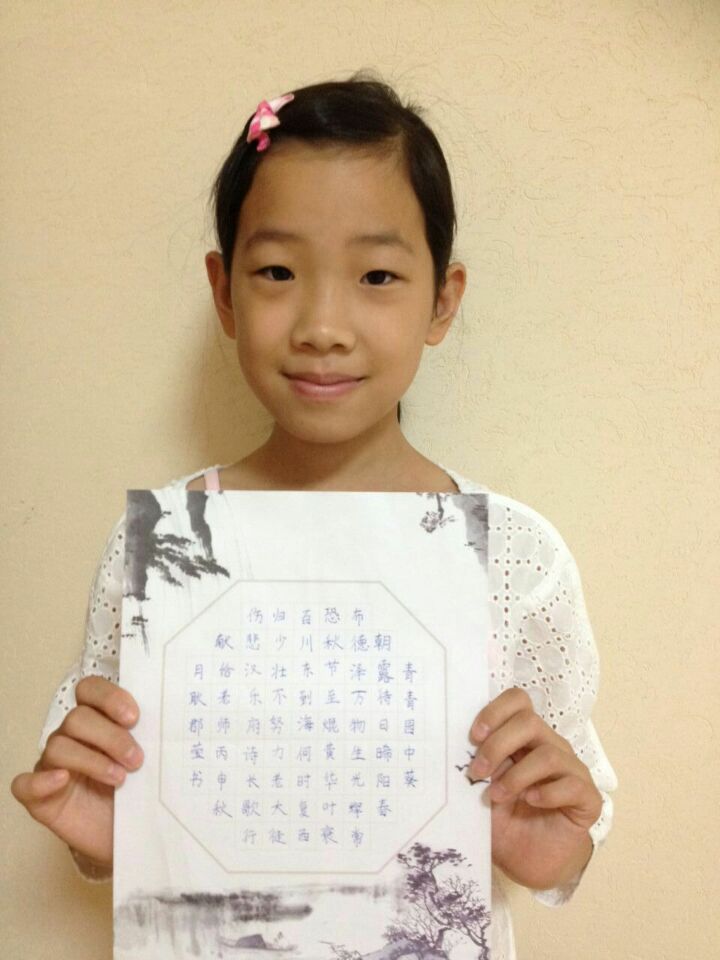 青青园中葵
朝露待日晞阳春
布德泽万物生光辉常
恐秋节至焜黄华叶衰
百川东到海何时复西
归少壮不努力老大徒
伤悲汉乐府诗长歌行
献给老师丙申秋
月耿郡莹书